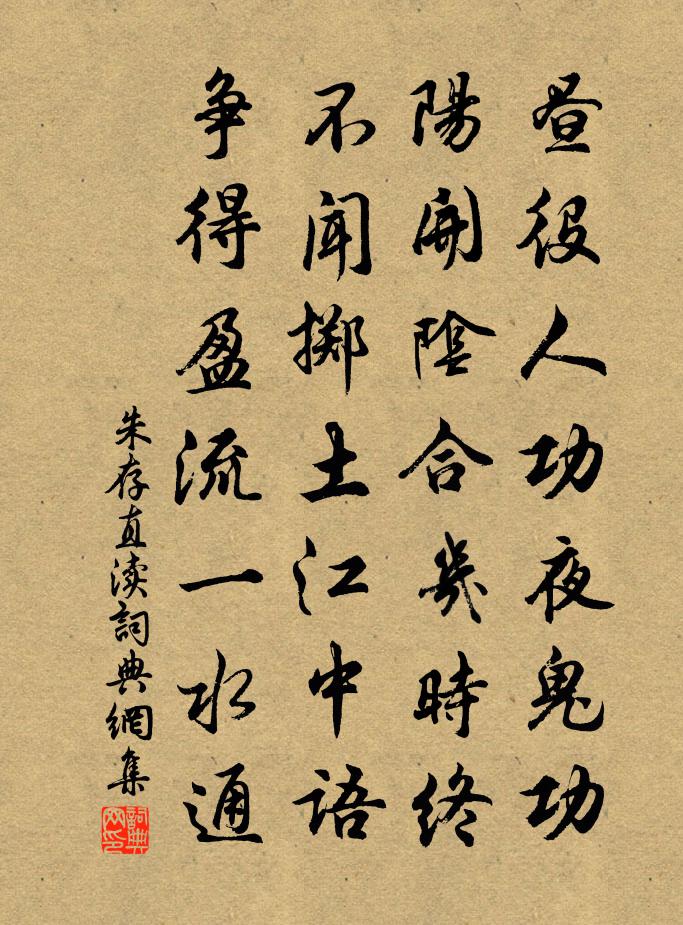 昼役人功夜鬼功
陽開陰合幾時終
不聞擲土江中語
争得盈流一水通
朱存直渎詞典網集
詞典网印